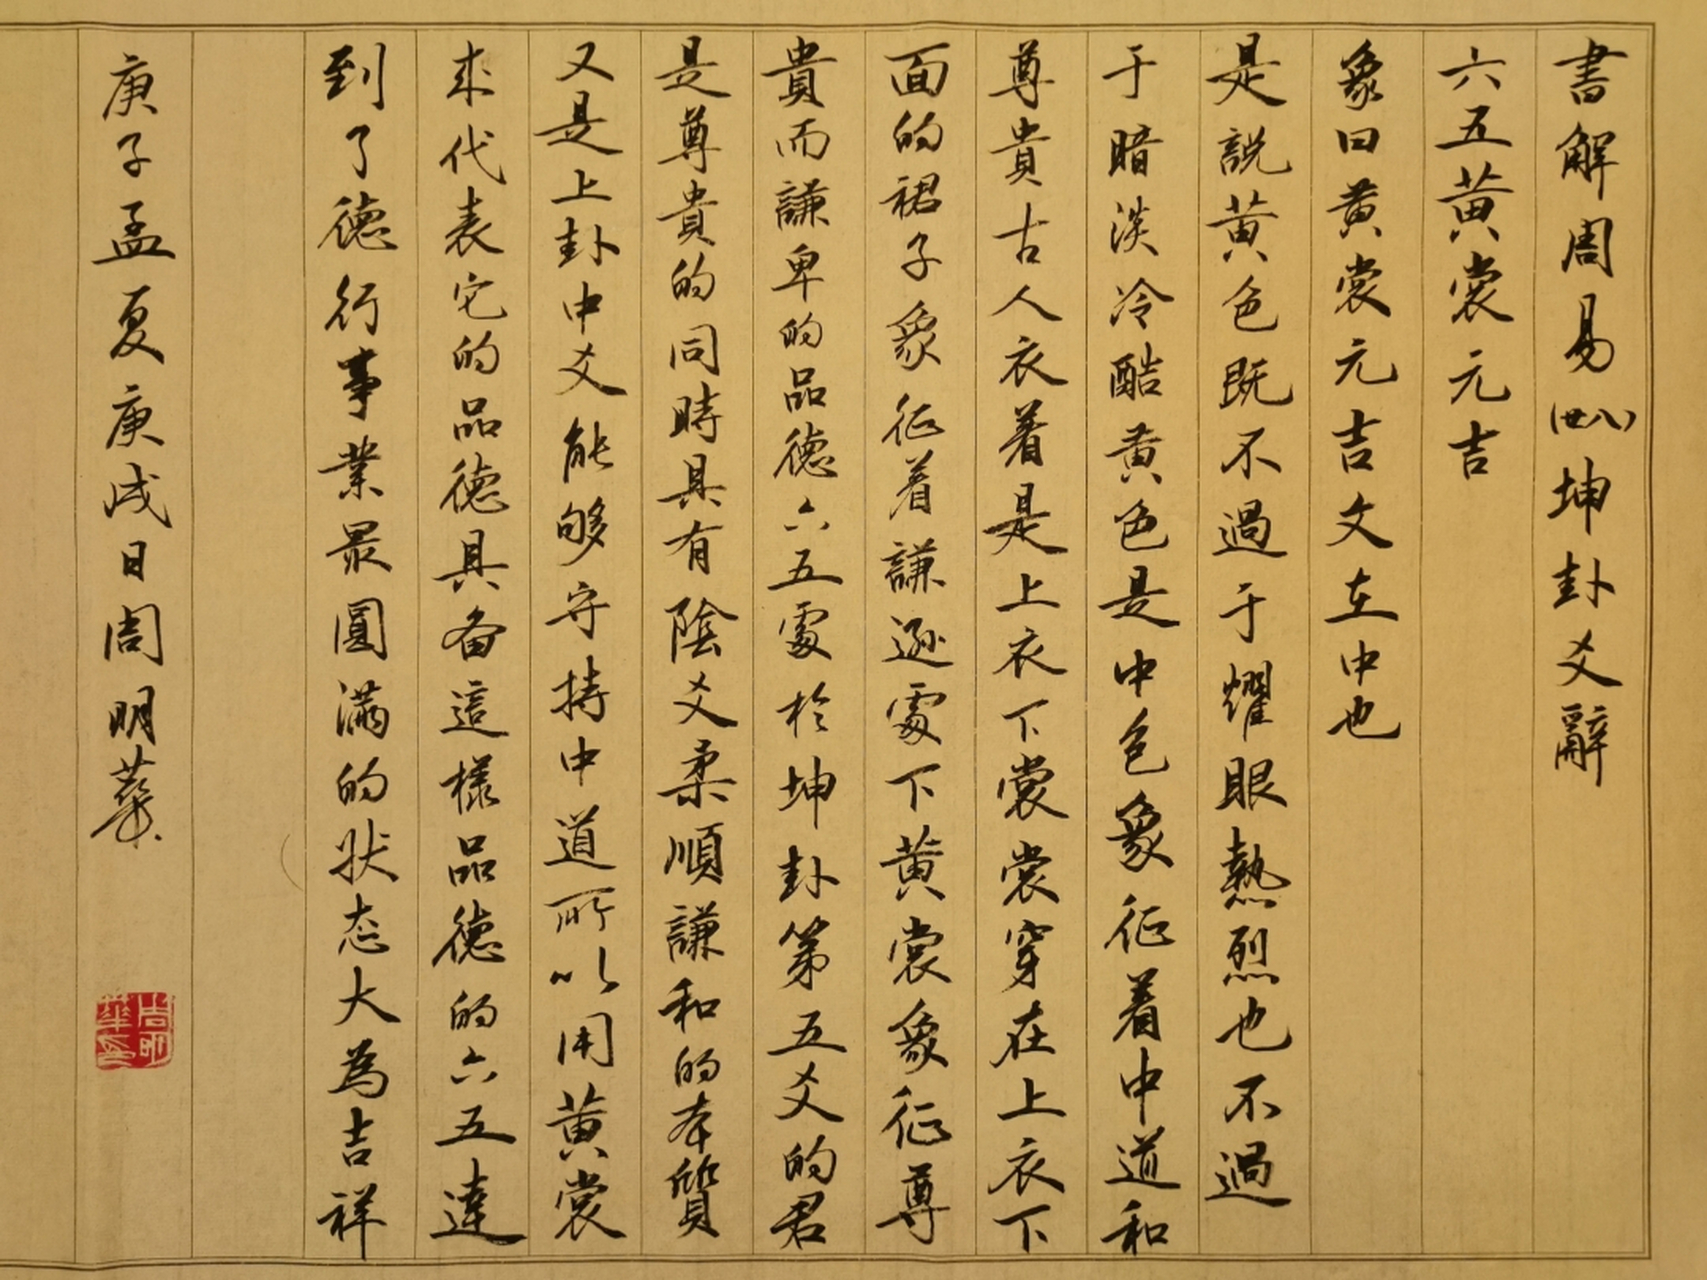 書解周易(卅八)坤卦爻辭
六五黄裳元吉
象曰黄裳元吉文在中也
是説黄色既不過于耀眼熱烈也不過
于暗淡冷酷黄色是中色象征着中道和
尊貴古人衣着是上衣下裳裳穿在上衣下
面的裙子象征着謙遜處下黄裳象征尊
貴而謙卑的品德六五處於坤卦第五爻的君
是尊貴的同時具有陰爻柔順謙和的本質
又是上卦中爻能够守持中道所以用黄裳
来代表它的品德具备這樣品德的六五達
到了德行事業最圓滿的状态大為吉祥
庚子孟夏庚戌日周明華
周明華印